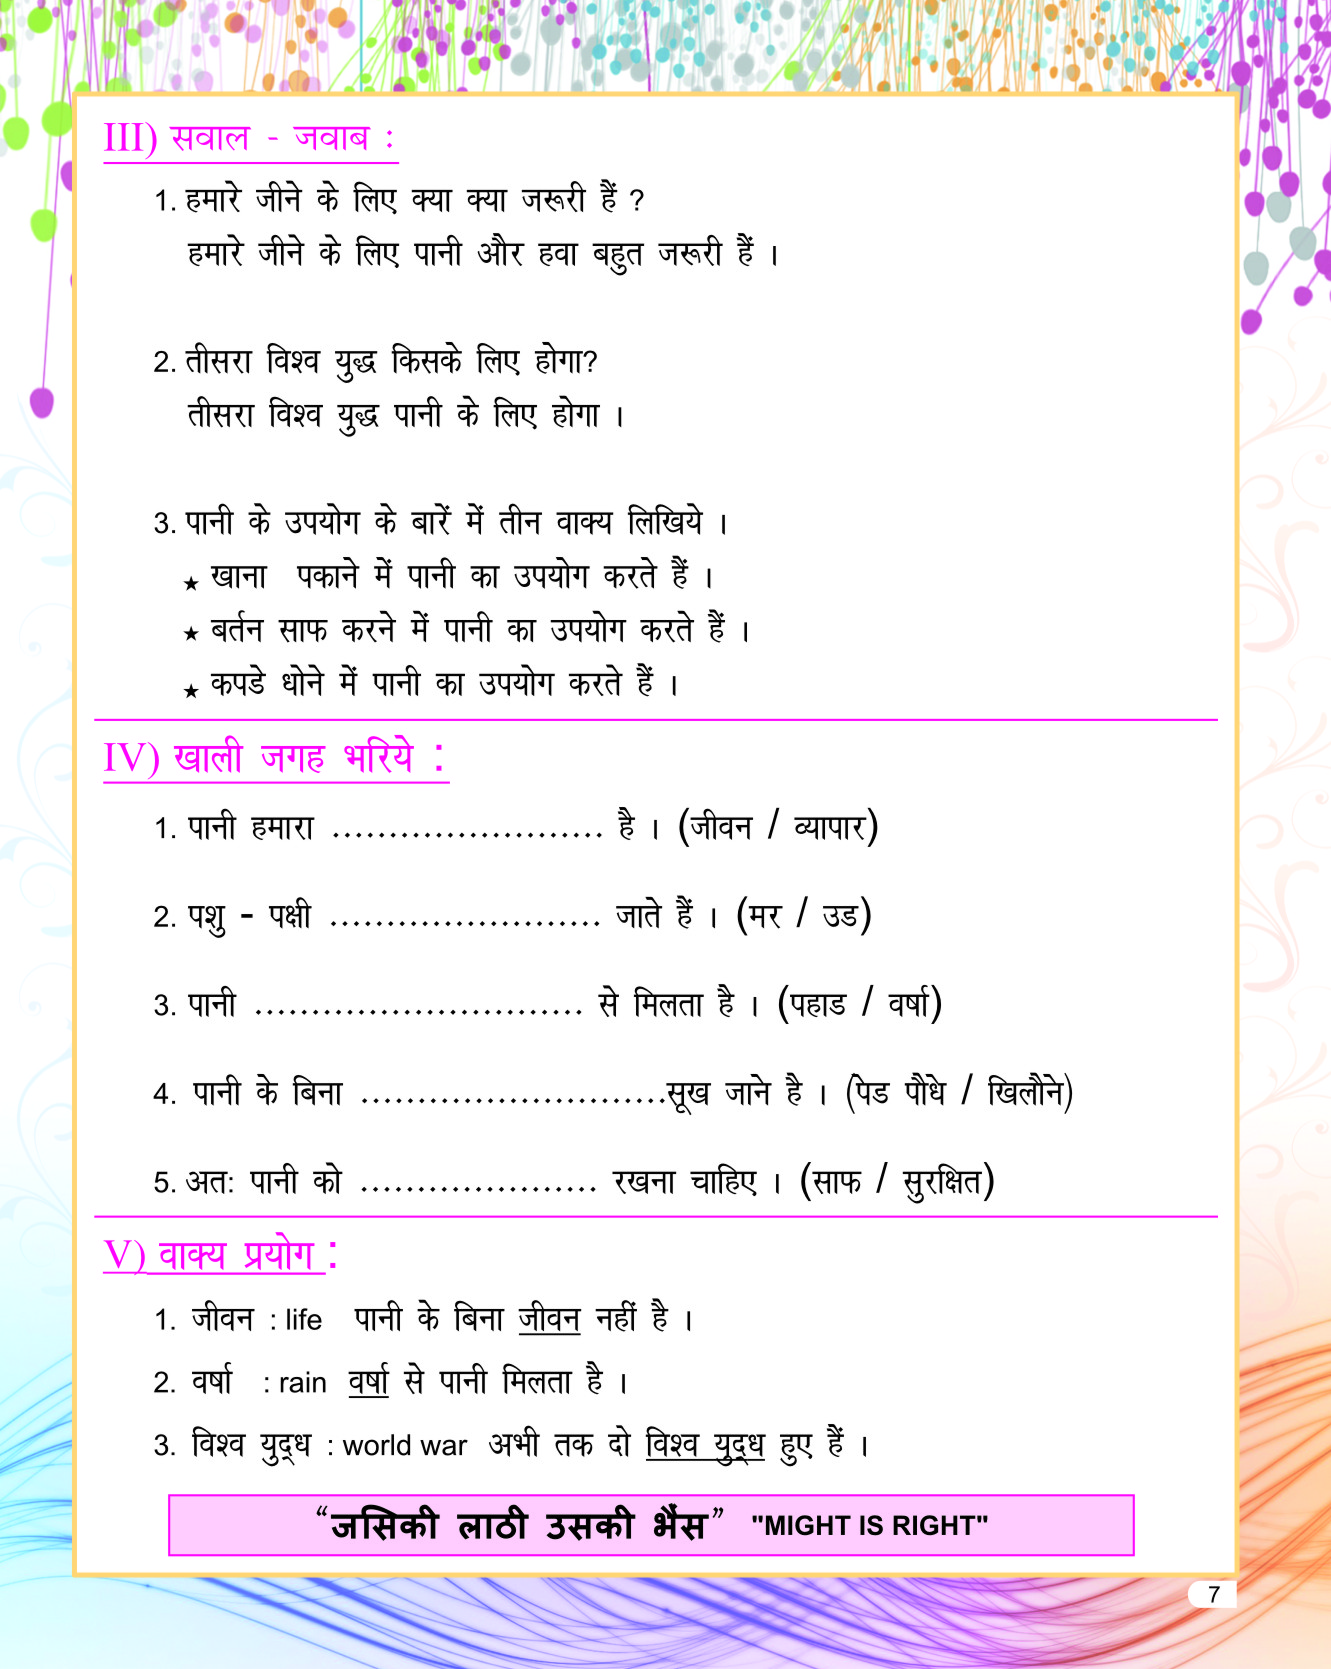 III) सवाल - जवाब :
1. हमारे जीने के लिए क्या क्या जरूरी हैं ?
हमारे जीने के लिए पानी और हवा बहुत जरूरी हैं ।
2. तीसरा विश्व युद्ध किसके लिए होगा?
तीसरा विश्व युद्ध पानी के लिए होगा ।
3. पानी के उपयोग के बारें में तीन वाक्य लिखिये ।
★ खाना पकाने में पानी का उपयोग करते हैं ।
★ बर्तन साफ करने में पानी का उपयोग करते हैं ।
★ कपडे धोने में पानी का उपयोग करते हैं ।
IV) खाली जगह भरिये :
1. पानी हमारा ........................ है । (जीवन / व्यापार)
2. पशु - पक्षी ........................ जाते हैं । (मर / उड)
3. पानी ............................. से मिलता है । (पहाड / वर्षा)
4. पानी के बिना ...........................सूख जाने है । (पेड पौधे / खिलौने)
5. अतः पानी को ..................... रखना चाहिए । (साफ / सुरक्षित)
V) वाक्य प्रयोग :
1. जीवन : life पानी के बिना जीवन नहीं है ।
2. वर्षा : rain वर्षा से पानी मिलता है ।
3. विश्व युद्‌ध : world war अभी तक दो विश्व युद्‌ध हुए हैं ।
“जसिकी लाठी उसकी भैंस” "MIGHT IS RIGHT"
7